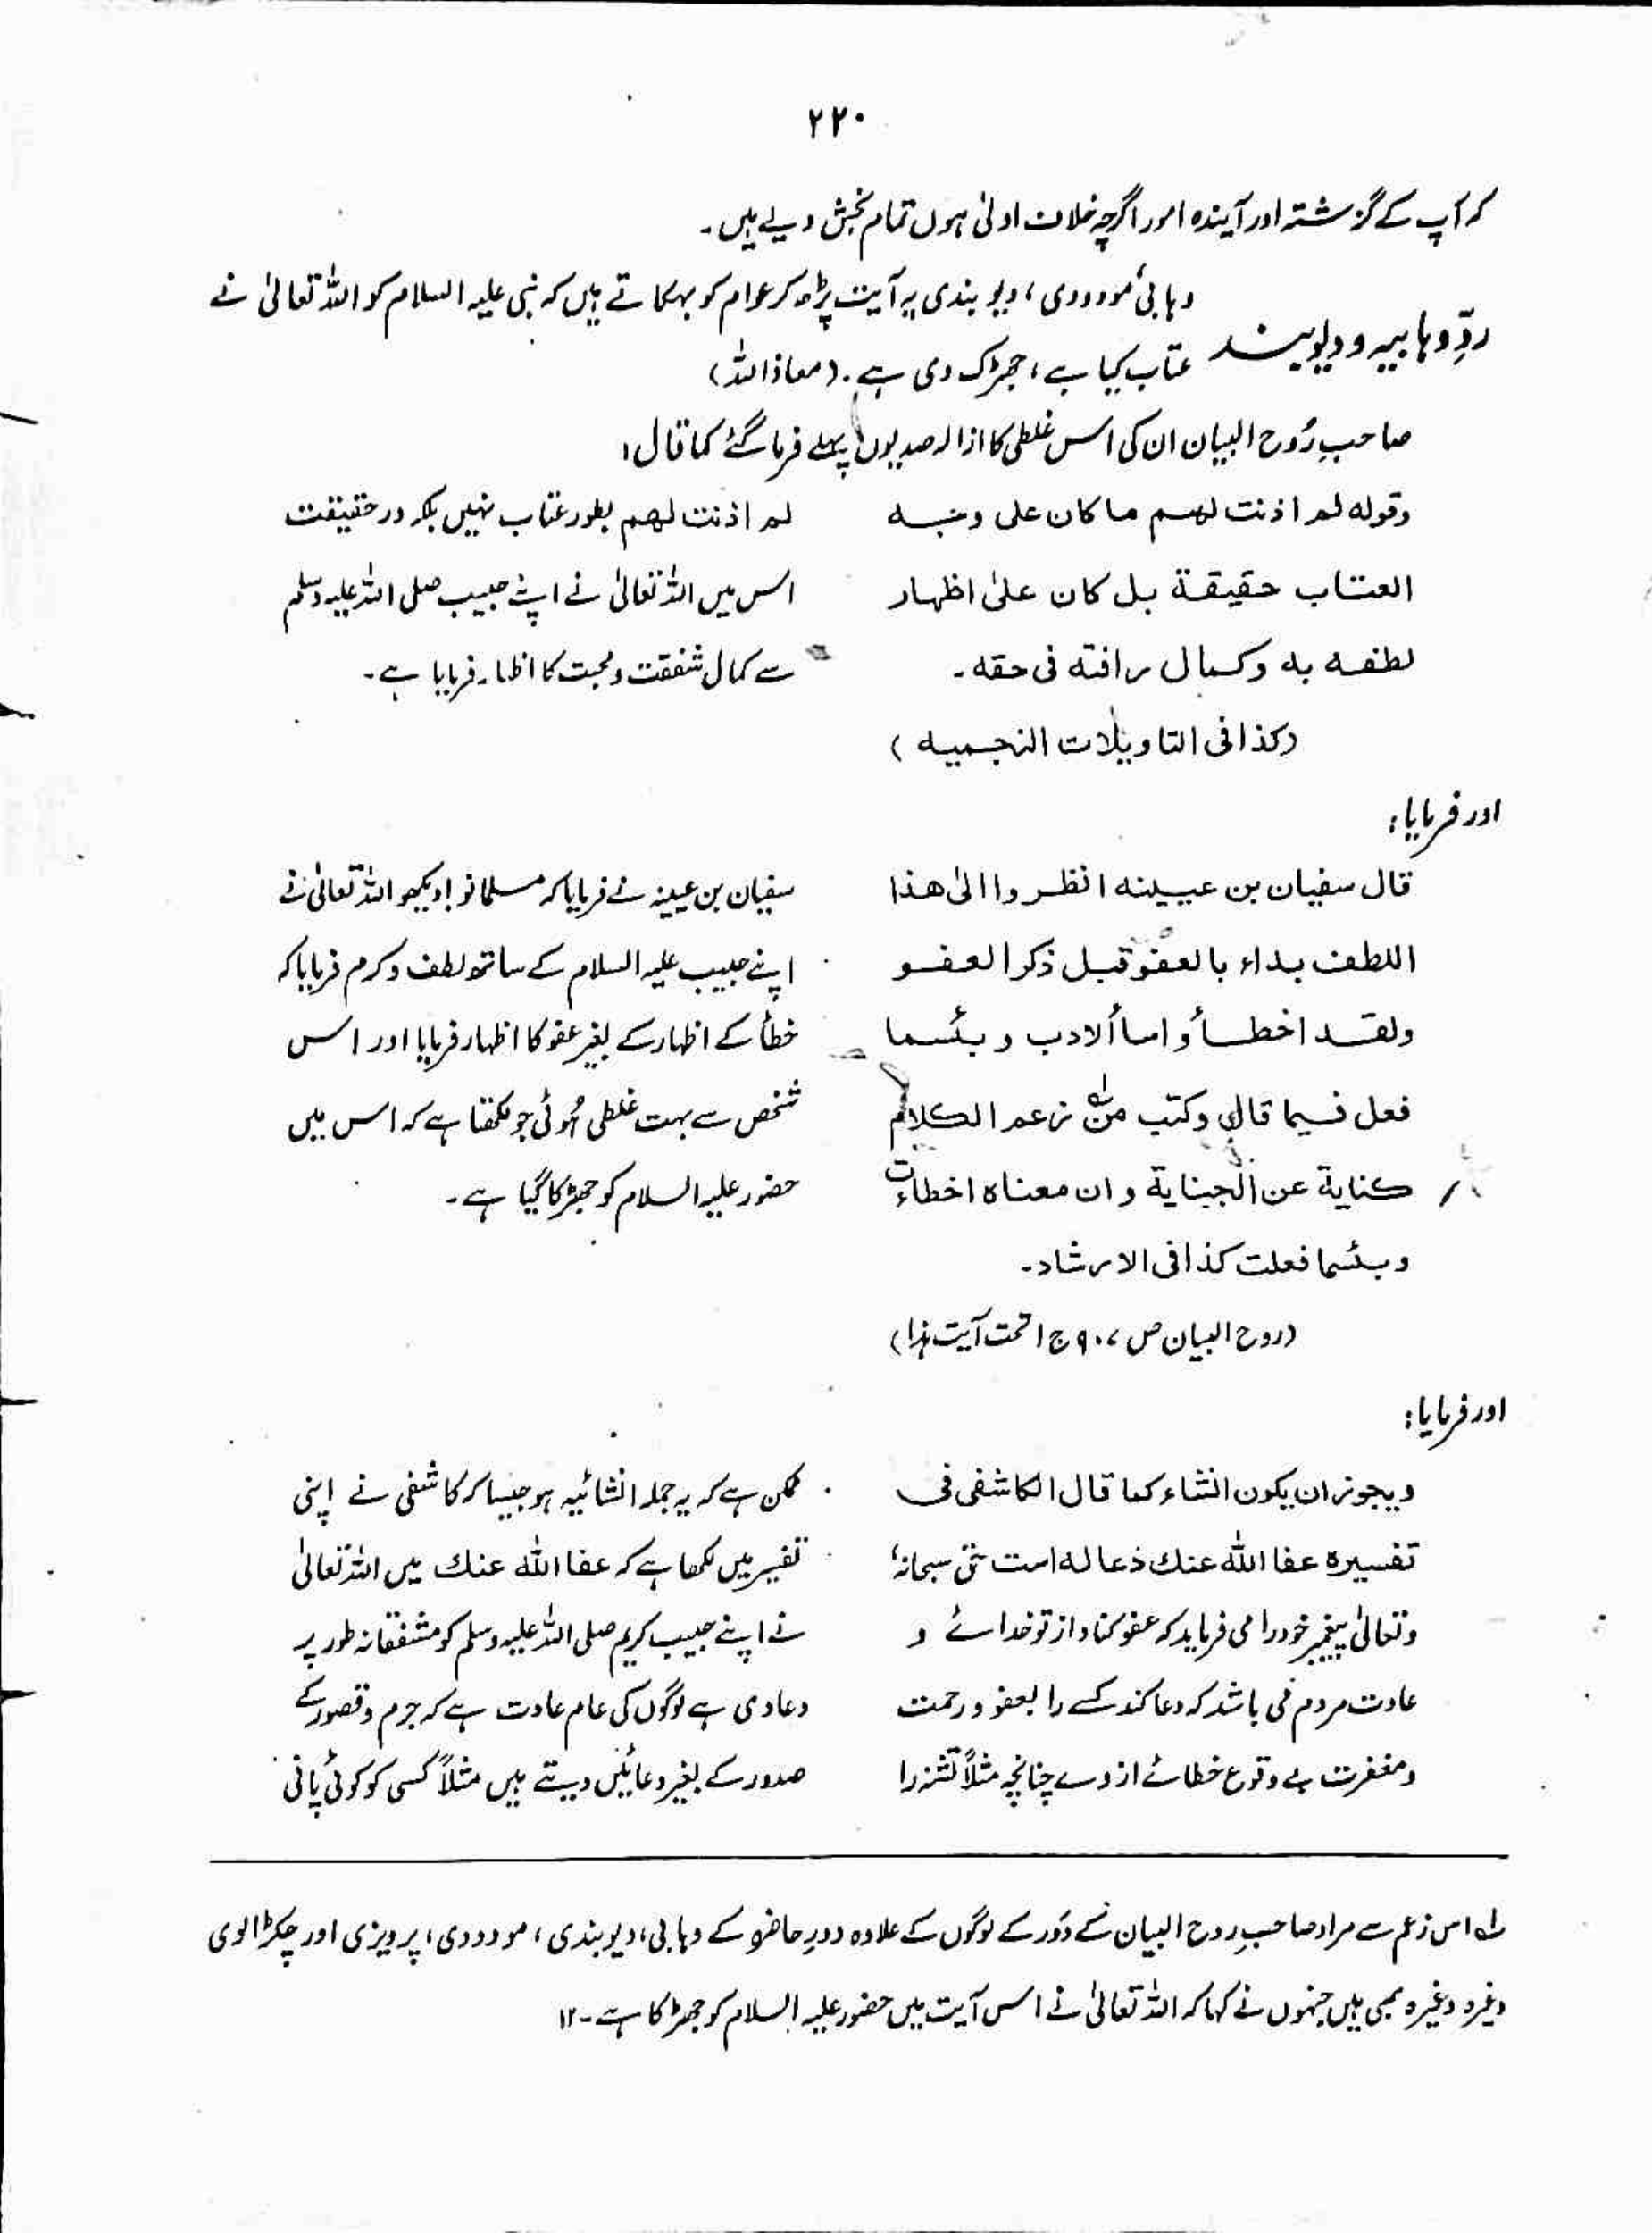 ۲۲۰
کہ آپ کے گزشتہ اور آیندہ امور اگرچہ خلاف اولیٰ ہوں تمام بخش دیے ہیں۔
ردِّ وہابیہ و دیوبند
وہابی، مودودی، دیوبندی یہ آیت پڑھ کر عوام کو بہکاتے ہیں کہ نبی علیہ السلام کو اللہ تعالیٰ نے
عتاب کیا ہے، جھڑک دی ہے۔ (معاذاللہ)
صاحبِ رُوح البیان ان کی اس غلطی کا ازالہ صدیوں پہلے فرما گئے کما قال:
وقوله لم اذنت لهم ما كان على وجه
العتاب حقيقة بل كان علىٰ اظهار
لطفه به وكمال رافته فى حقه۔
(كذا فى التاويلات النجميه)
لم اذنت لهم بطور عتاب نہیں بلکہ درحقیقت
اس میں اللہ تعالیٰ نے اپنے حبیب صلی اللہ علیہ وسلم
سے کمال شفقت و محبت کا اظہار فرمایا ہے۔
اور فرمایا:
قال سفيان بن عيينه انظروا الىٰ هذا
اللطف بداء بالعفو قبل ذكر العفو
ولقد اخطأ و اسأ الادب و بئسما
فعل فيما قال وكتب من لہ زعم الكلام
كناية عن الجناية و ان معناه اخطاءت
وبئسما فعلت كذا فى الارشاد۔
(روح البیان ص ۹۰۷ ج ۱ تحت آیت ہذا)
سفیان بن عیینہ نے فرمایا کہ مسلمانو! دیکھو اللہ تعالیٰ نے
اپنے حبیب علیہ السلام کے ساتھ لطف و کرم فرمایا کہ
خطأ کے اظہار کے بغیر عفو کا اظہار فرمایا اور اس
شخص سے بہت غلطی ہُوئی جو لکھتا ہے کہ اس میں
حضور علیہ السلام کو جھڑکا گیا ہے۔
اور فرمایا:
ويجوز ان يكون انشاء كما قال الكاشفى فى
تفسيره عفا الله عنك دعا له است حق سبحانہٗ
وتعالیٰ پیغمبر خود را می فرماید کہ عفو کناد از تو خدائے و
عادت مردم می باشد کہ دعا کند کسے را بعفو و رحمت
و مغفرت بے وقوع خطائے از وے چنانچہ مثلاً تشنہ را
ممکن ہے کہ یہ جملہ انشائیہ ہو جیسا کہ کاشفی نے اپنی
تفسیر میں لکھا ہے کہ عفا الله عنك میں اللہ تعالیٰ
نے اپنے حبیب کریم صلی اللہ علیہ وسلم کو مشفقانہ طور پر
دعا دی ہے لوگوں کی عام عادت ہے کہ جرم و قصور کے
صدور کے بغیر دعائیں دیتے ہیں مثلاً کسی کو کوئی پانی
لہ اس زعم سے مراد صاحبِ روح البیان کے دَور کے لوگوں کے علاوہ دورِ حاضرہ کے وہابی، دیوبندی، مودودی، پرویزی اور چکڑالوی
وغیرہ وغیرہ بھی ہیں جنہوں نے کہا کہ اللہ تعالیٰ نے اس آیت میں حضور علیہ السلام کو جھڑکا ہے۔ ۱۲